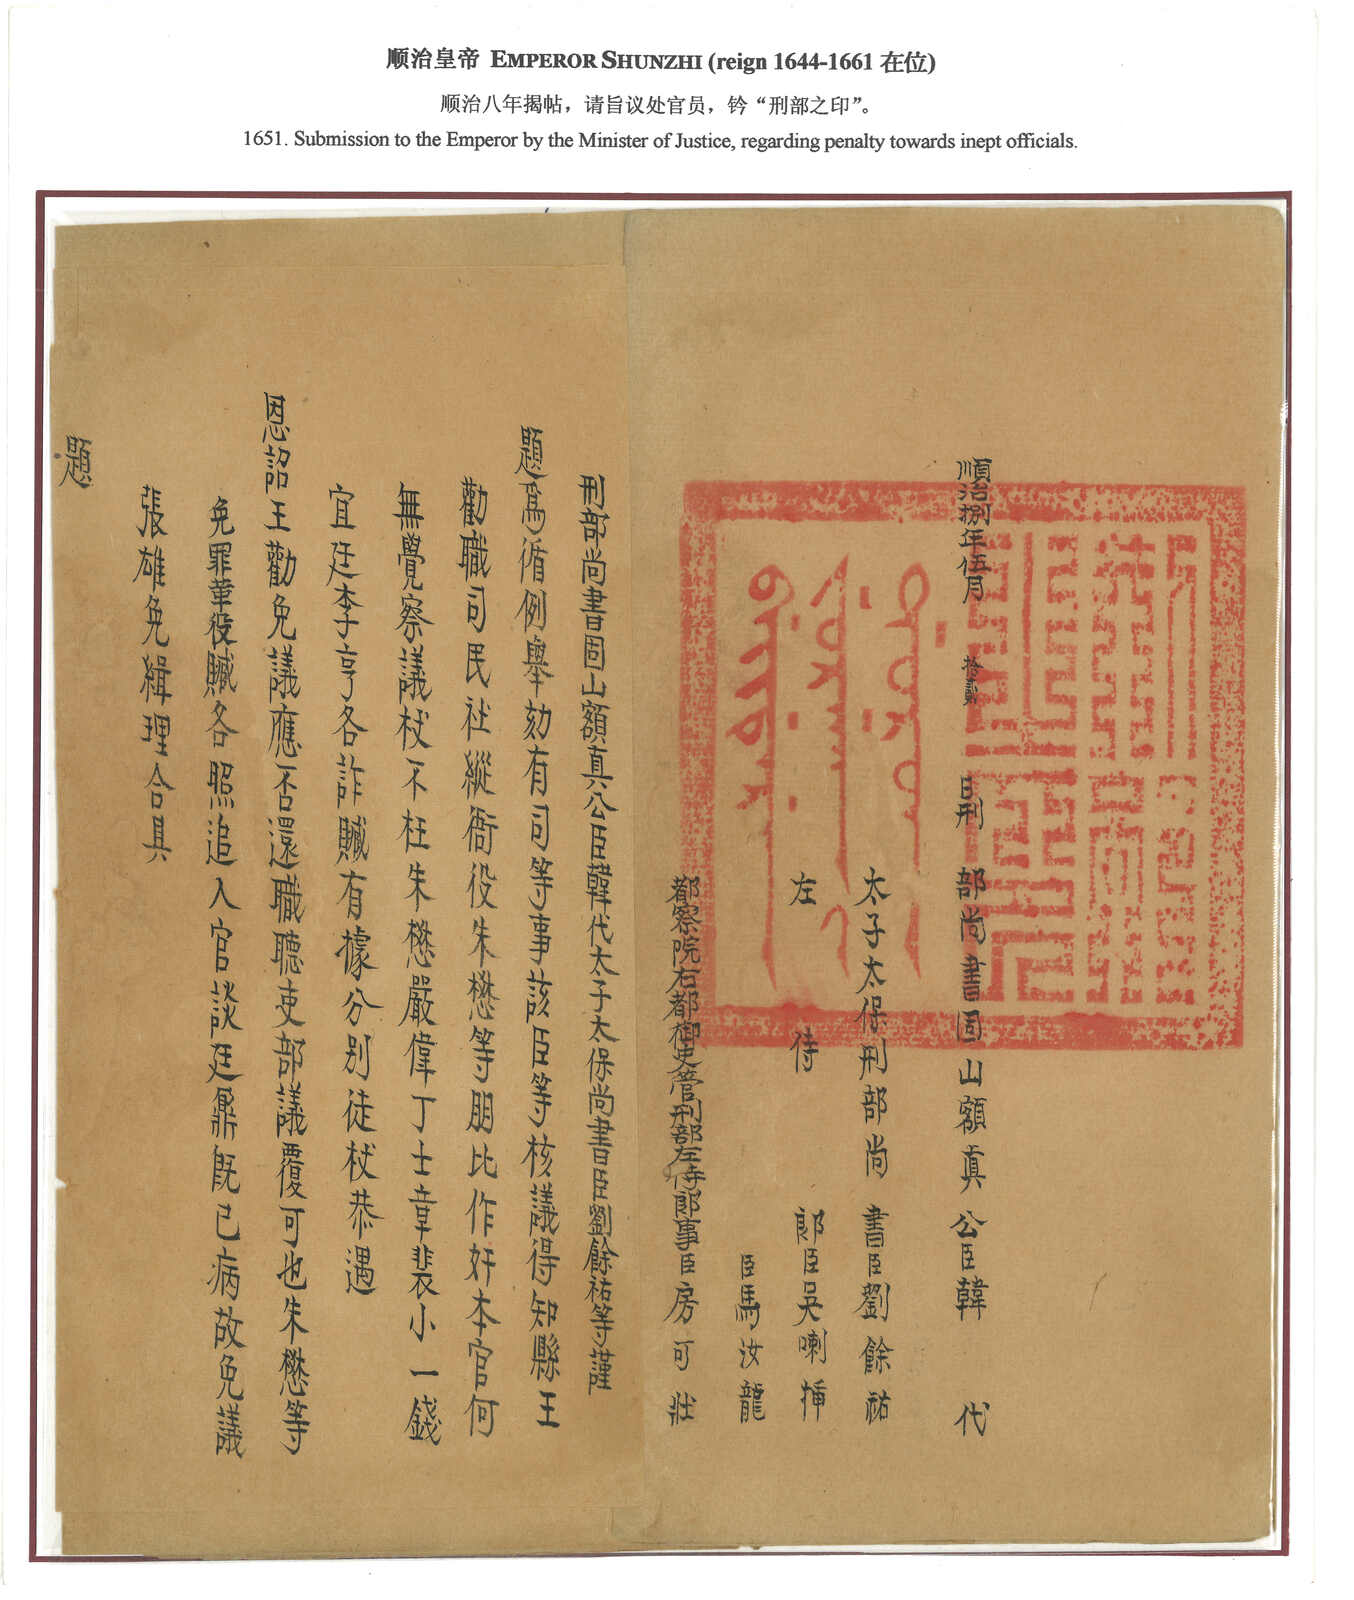 顺治皇帝 EMPEROR SHUNZHI (reign 1644-1661 在位)
顺治八年揭帖，请旨议处官员，钤“刑部之印”。
1651. Submission to the Emperor by the Minister of Justice, regarding penalty towards inept officials.
順治捌年伍月 拾貳 日刑 部尚書固山額真公臣韓 代
太子太保刑部尚書臣劉餘祐
左 侍 郎臣吳喇揷
臣馬汝龍
都察院右都御史管刑部左侍郎事臣房可壯
刑部尚書固山額真公臣韓代太子太保尚書臣劉餘祐等謹
題爲循例舉劾有司等事該臣等核議得知縣王
勸職司民社縱衙役朱懋等朋比作奸本官何
無覺察議杖不枉朱懋嚴偉丁士章裴小一錢
宜廷李亨各詐贓有據分别徒杖恭遇
恩詔王勸免議應否還職聽吏部議覆可也朱懋等
免罪革役贓各照追入官談廷鼏旣已病故免議
張雄免緝理合具
題